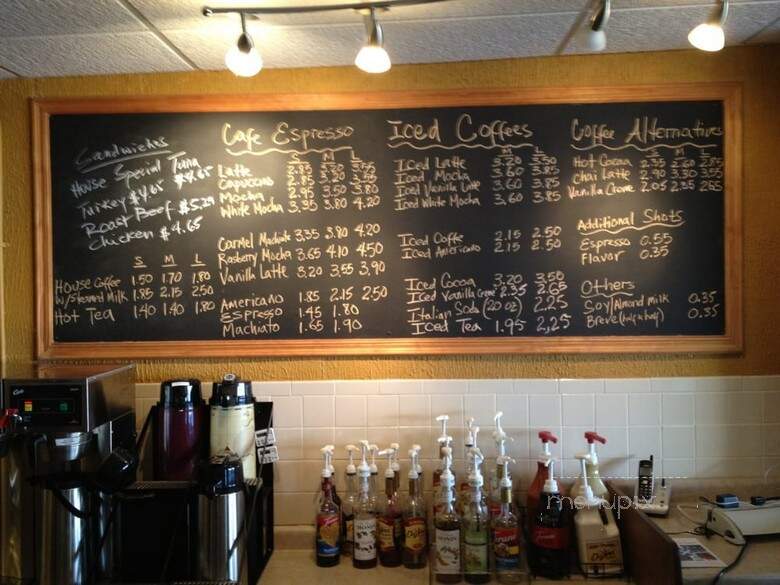 Sandwiches
House Special Tuna $4.65
Turkey $4.65
Roast Beef $5.29
Chicken $4.65
S M L
House Coffee 1.50 1.70 1.80
w/steamed Milk 1.85 2.15 2.50
Hot Tea 1.40 1.40 1.80
Cafe Espresso
S M L
Latte 2.85 3.30 3.55
Capuccino 2.85 3.30 3.55
Mocha 2.95 3.50 3.80
White Mocha 3.35 3.80 4.20
Carmel Machiato 3.35 3.80 4.20
Rasberry Mocha 3.65 4.10 4.50
Vanilla Latte 3.20 3.55 3.90
Americano 1.85 2.15 2.50
Espresso 1.45 1.80
Machiato 1.65 1.90
Iced Coffees
M L
Iced Latte 3.20 3.50
Iced Mocha 3.60 3.85
Iced Vanilla Latte 3.60 3.85
Iced White Mocha 3.60 3.85
Iced Coffe 2.15 2.50
Iced Americano 2.15 2.50
Iced Cocoa 3.20 3.50
Iced Vanilla Creme 2.35 2.65
Italian Soda (20 oz) 2.25
Iced Tea 1.95 2.25
Coffee Alternatives
S M L
Hot Cocoa 2.35 2.60 2.85
Chai Latte 2.90 3.30 3.55
Vanilla Creme 2.05 2.35 2.65
Additional Shots
Espresso 0.55
Flavor 0.35
Others
Soy/Almond milk 0.35
Breve (half & half) 0.35
menupix